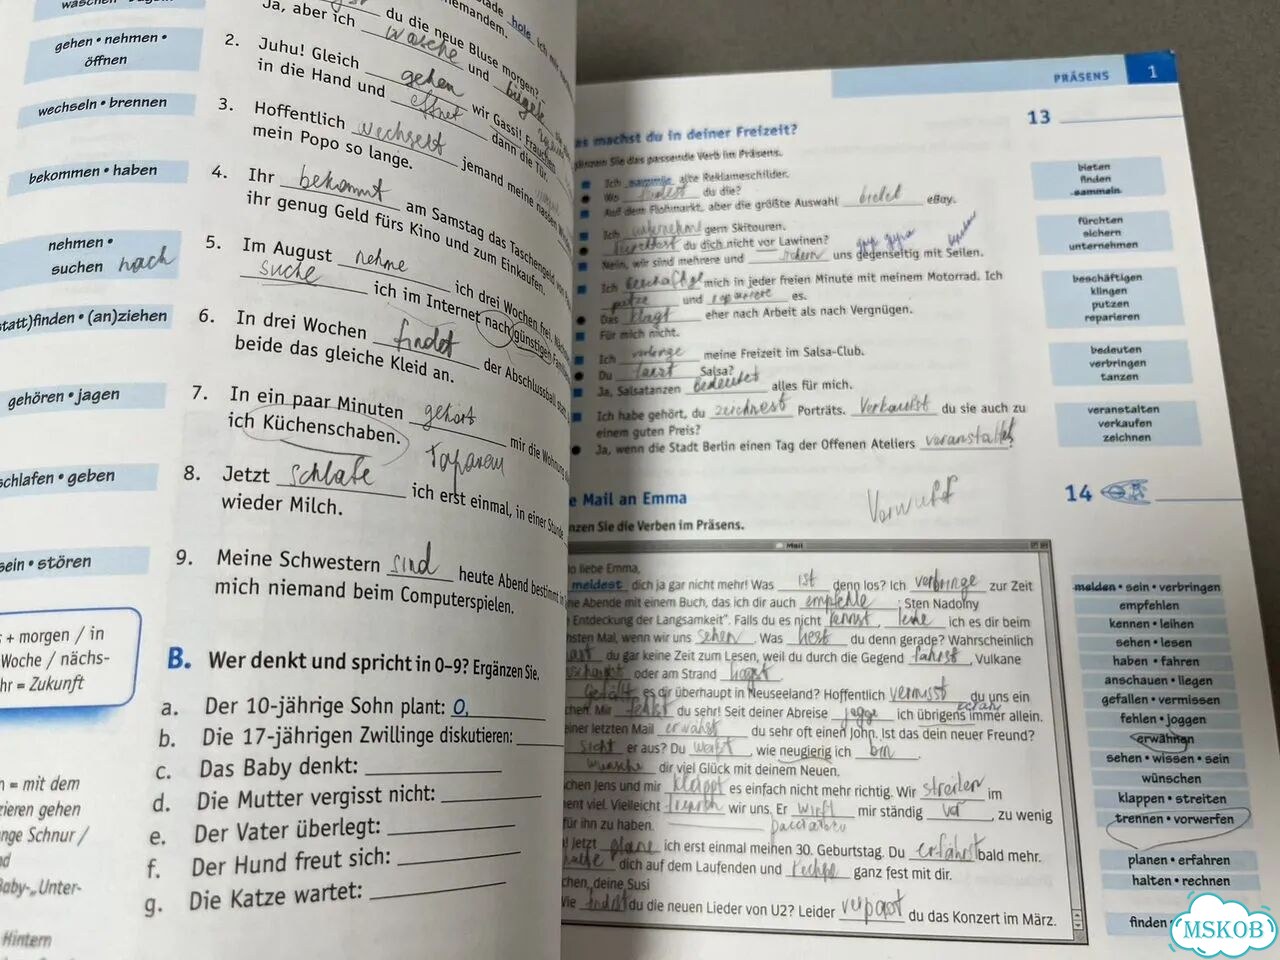 waschen • bügeln
gehen • nehmen •
öffnen
wechseln • brennen
bekommen • haben
nehmen •
suchen nach
(statt)finden • (an)ziehen
gehören • jagen
schlafen • geben
sein • stören
+ morgen / in
Woche / nächs-
hr = Zukunft
= mit dem
zieren gehen
nge Schnur /
Baby-„Unter-
Hintern
hole ich mir
niemandem.
du die neue Bluse morgen?
Ja, aber ich wasche und bügele
2. Juhu! Gleich gehen wir Gassi! Frauchen
in die Hand und öffnet dann die Tür.
3. Hoffentlich wechselt jemand meine nassen
mein Popo so lange.
4. Ihr bekommt am Samstag das Taschengeld von
ihr genug Geld fürs Kino und zum Einkaufen.
5. Im August nehme ich drei Wochen frei.
suche ich im Internet nach günstigen
6. In drei Wochen findet der Abschlussball statt
beide das gleiche Kleid an.
7. In ein paar Minuten gehört mir die Wohnung
ich Küchenschaben.
8. Jetzt schlafe ich erst einmal, in einer Stunde
wieder Milch.
9. Meine Schwestern sind heute Abend bestimmt
mich niemand beim Computerspielen.
B. Wer denkt und spricht in 0–9? Ergänzen Sie.
a. Der 10-jährige Sohn plant: 0,
b. Die 17-jährigen Zwillinge diskutieren:
c. Das Baby denkt:
d. Die Mutter vergisst nicht:
e. Der Vater überlegt:
f. Der Hund freut sich:
g. Die Katze wartet:
PRÄSENS 1
13
as machst du in deiner Freizeit?
gänzen Sie das passende Verb im Präsens.
Ich sammle alte Reklameschilder.
Wo findest du die?
Auf dem Flohmarkt, aber die größte Auswahl bietet eBay.
Ich unternehme gern Skitouren.
Fürchtest du dich nicht vor Lawinen?
Nein, wir sind mehrere und sichern uns gegenseitig mit Seilen.
Ich beschäftige mich in jeder freien Minute mit meinem Motorrad. Ich
putze und repariere es.
Das klingt eher nach Arbeit als nach Vergnügen.
Für mich nicht.
Ich verbringe meine Freizeit im Salsa-Club.
Du tanzt Salsa?
Ja, Salsatanzen bedeutet alles für mich.
Ich habe gehört, du zeichnest Porträts. Verkaufst du sie auch zu
einem guten Preis?
Ja, wenn die Stadt Berlin einen Tag der Offenen Ateliers veranstaltet.
bieten
finden
sammeln
fürchten
sichern
unternehmen
beschäftigen
klingen
putzen
reparieren
bedeuten
verbringen
tanzen
veranstalten
verkaufen
zeichnen
14
e Mail an Emma
Vorwurf
nzen Sie die Verben im Präsens.
Mail
lo liebe Emma,
meldest dich ja gar nicht mehr! Was ist denn los? Ich verbringe zur Zeit
ne Abende mit einem Buch, das ich dir auch empfehle: Sten Nadolny
Entdeckung der Langsamkeit". Falls du es nicht kennst, leihe ich es dir beim
hsten Mal, wenn wir uns sehen. Was liest du denn gerade? Wahrscheinlich
hast du gar keine Zeit zum Lesen, weil du durch die Gegend fährst, Vulkane
anschaust oder am Strand liegst.
Gefällt es dir überhaupt in Neuseeland? Hoffentlich vermisst du uns ein
chen. Mir fehlst du sehr! Seit deiner Abreise jogge ich übrigens immer allein.
einer letzten Mail erwähnst du sehr oft einen John. Ist das dein neuer Freund?
sieht er aus? Du weißt, wie neugierig ich bin.
wünsche dir viel Glück mit deinem Neuen.
schen Jens und mir klappt es einfach nicht mehr richtig. Wir streiten im
ent viel. Vielleicht trennen wir uns. Er wirft mir ständig vor, zu wenig
für ihn zu haben.
Jetzt plane ich erst einmal meinen 30. Geburtstag. Du erfährst bald mehr.
halte dich auf dem Laufenden und rechne ganz fest mit dir.
chen, deine Susi
Wie findest du die neuen Lieder von U2? Leider verpasst du das Konzert im März.
melden • sein • verbringen
empfehlen
kennen • leihen
sehen • lesen
haben • fahren
anschauen • liegen
gefallen • vermissen
fehlen • joggen
erwähnen
sehen • wissen • sein
wünschen
klappen • streiten
trennen • vorwerfen
planen • erfahren
halten • rechnen
finden
MSKOB